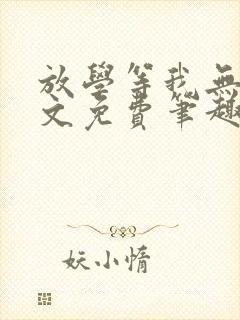 放學等我無
文免費筆趣
妖小惰